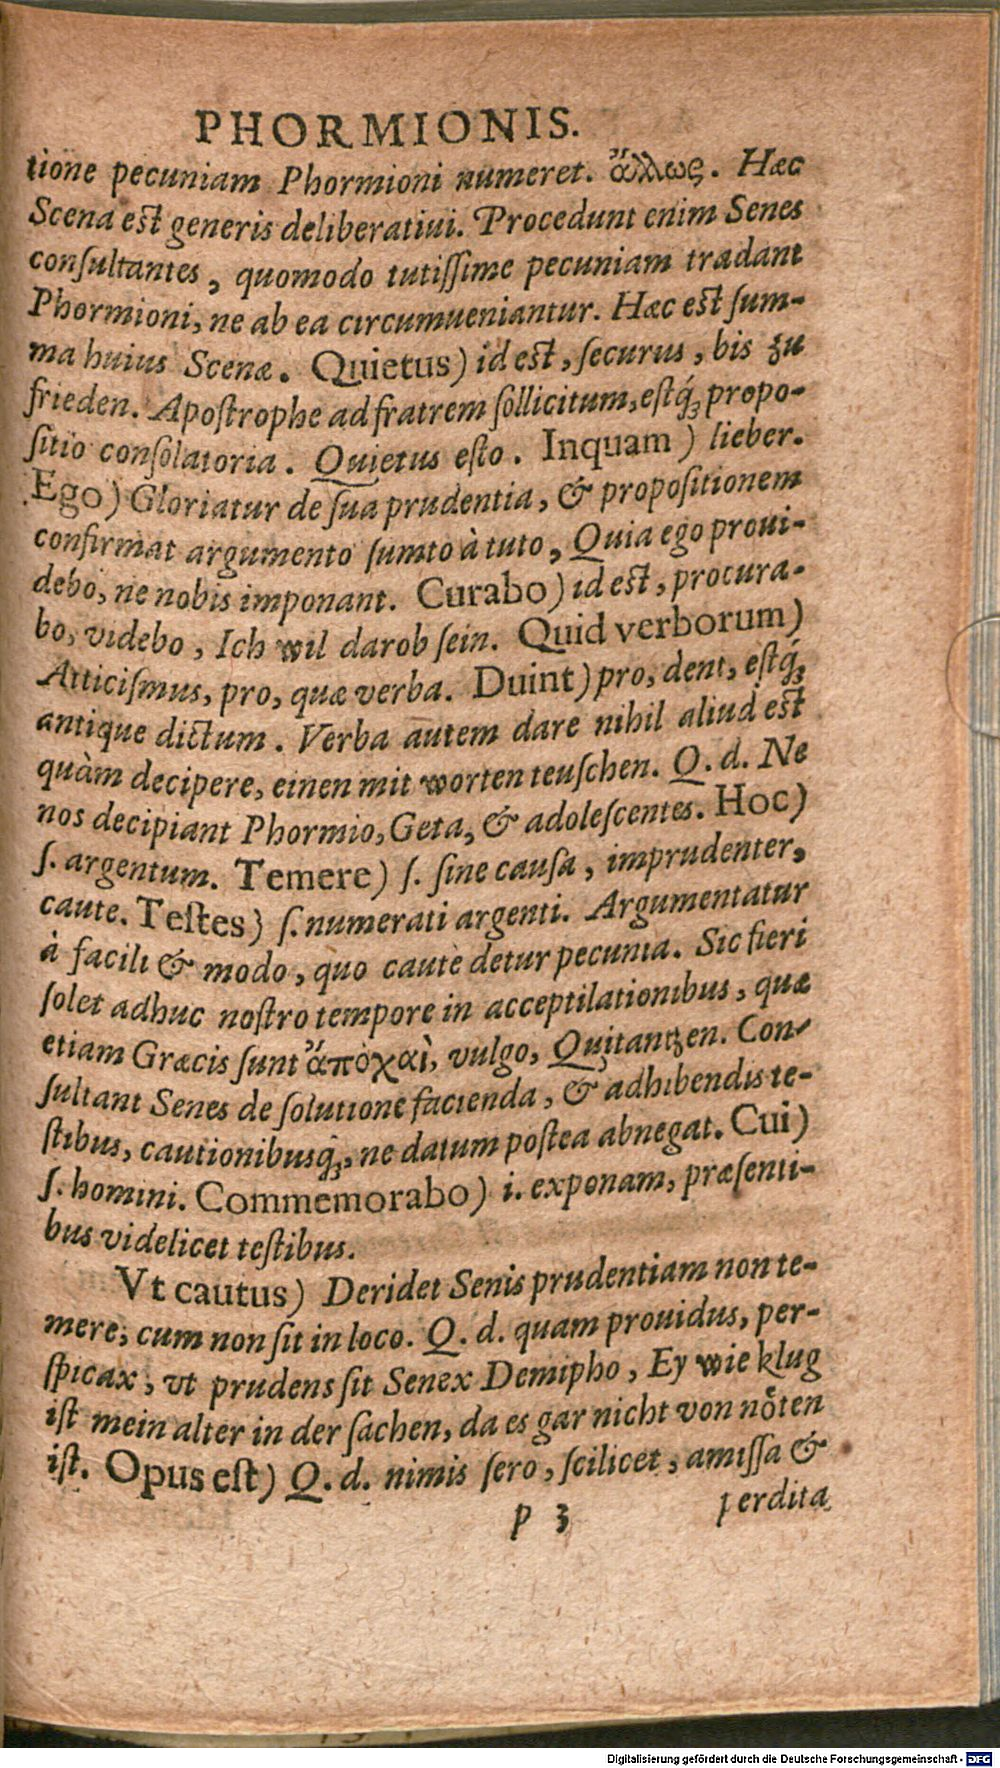 PHORMIONIS.
tione pecuniam Phormioni numeret. ἄλλως. Hæc
Scena eſt generis deliberatiui. Procedunt enim Senes
conſultantes, quomodo tutiſſime pecuniam tradant
Phormioni, ne ab ea circumueniantur. Hæc eſt ſum-
ma huius Scenæ. Quietus) id eſt, ſecurus, bis zu
frieden. Apoſtrophe ad fratrem ſollicitum, eſtq́; propo-
ſitio conſolatoria. Quietus eſto. Inquam) lieber.
Ego) Gloriatur de ſua prudentia, & propoſitionem
confirmat argumento ſumto à tuto, Quia ego proui-
debo, ne nobis imponant. Curabo) id eſt, procura-
bo, videbo, Ich wil darob ſein. Quid verborum)
Atticiſmus, pro, quæ verba. Duint) pro, dent, eſtq́;
antique dictum. Verba autem dare nihil aliud eſt
quàm decipere, einen mit worten teuſchen. Q. d. Ne
nos decipiant Phormio, Geta, & adoleſcentes. Hoc)
ſ. argentum. Temere) ſ. ſine cauſa, imprudenter,
caute. Teſtes) ſ. numerati argenti. Argumentatur
à facili & modo, quo cautè detur pecunia. Sic fieri
ſolet adhuc noſtro tempore in acceptilationibus, quæ
etiam Græcis ſunt ἄποχαὶ, vulgo, Quitantzen. Con-
ſultant Senes de ſolutione facienda, & adhibendis te-
ſtibus, cautionibusq́;, ne datum poſtea abnegat. Cui)
ſ. homini. Commemorabo) i. exponam, præſenti-
bus videlicet teſtibus.
Vt cautus) Deridet Senis prudentiam non te-
mere, cum non ſit in loco. Q. d. quam prouidus, per-
ſpicax, vt prudens ſit Senex Demipho, Ey wie klug
iſt mein alter in der ſachen, da es gar nicht von nöten
iſt. Opus eſt) Q. d. nimis ſero, ſcilicet, amiſſa &
P 3 perdita
Digitalisierung gefördert durch die Deutsche Forschungsgemeinschaft - DFG